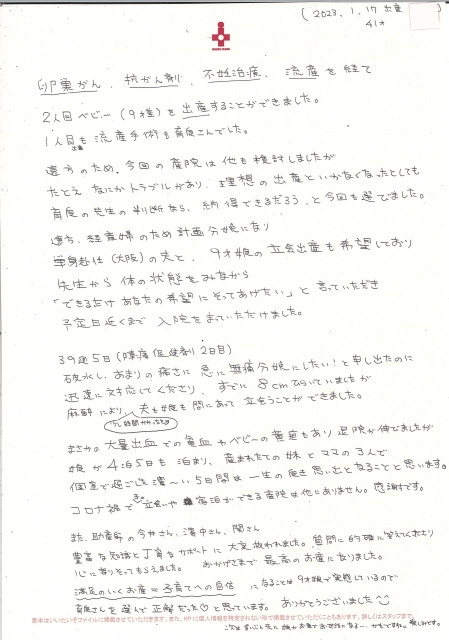 ( 2023. 1. 17 出産 )
41才
卵巣がん、抗がん剤、不妊治療、流産を経て
2人目ベビー(9才差)を出産することができました。
1人目も流産手術も育良さんでした。
遠方のため、今回の産院は他も検討しましたが
たとえなにかトラブルがあり、理想の出産といかなくなったとしても
育良の先生の判断なら、納得できるだろう、と今回も選びました。
遠方、経産婦のため計画分娩になり
単身赴任(大阪)の夫と、9才娘の立会出産も希望しており
先生から体の状態をみながら
「できるだけあなたの希望にそってあげたい」と言っていただき
予定日近くまで入院をまっていただけました。
39週5日(陣痛促進剤2日目)
破水し、あまりの痛さに急に無痛分娩にしたい!と申し出たのに
迅速に対応してくださり、すでに8cmひらいていましたが
麻酔により、夫も娘も間にあって立会うことができました。
まさか、大量出血での貧血やベビーの黄疸もあり退院が伸びましたが
娘が4泊5日も泊まり、産まれたての妹とママの3人で
個室で過ごした濃〜い5日間は一生の良き思い出となることと思います。
コロナ禍で立会いや宿泊ができる産院は他にありません。感謝です。
また、助産師の今井さん、濱中さん、関さん
豊富な知識と丁寧なサポートに大変救われました。質問に的確に答えてくださり
心に寄りそってもらえました。おかげさまで最高のお産になりました。
満足のいくお産=子育てへの自信になることは9才娘で実感しているので
育良さんを選んで正解だった♡と思っています。ありがとうございました
原本はいいたいぞファイルに掲載させていただきます。また、HPに個人情報を特定されない形で掲載させていただくこともあります。詳しくはスタッフまで。